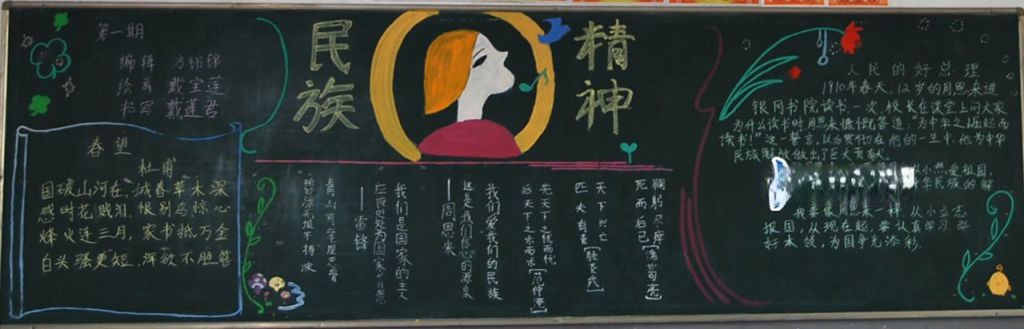 第一期
编辑
绘画 戴宝莲
书写 戴莲君
春望
杜甫
国破山河在,城春草木深
感时花溅泪,恨别鸟惊心
烽火连三月,家书抵万金
白头骚更短,浑欲不胜簪
民族
精神
鞠躬尽瘁
死而后已[诸葛亮]
天下兴亡
匹夫有责[顾炎武]
先天下之忧而忧
后天下之乐而乐[范仲淹]
我们爱我们的民族
这是我们自信的源泉
——周恩来
我们是国家的主人
应该处处为国家着想
——雷锋
人民的好总理
1910年春天,12岁的周恩来进
银冈书院读书一次,校长在课堂上问大家
为什么读书时周恩来慷慨答道,"为中华之崛起而
读书!"这一誓言,
民族解放做出了巨大贡献
爱祖国,
华民族的解
我要像周恩来一样,从小立志
报国,从现在起,要认真学习
好本领,为国争光添彩